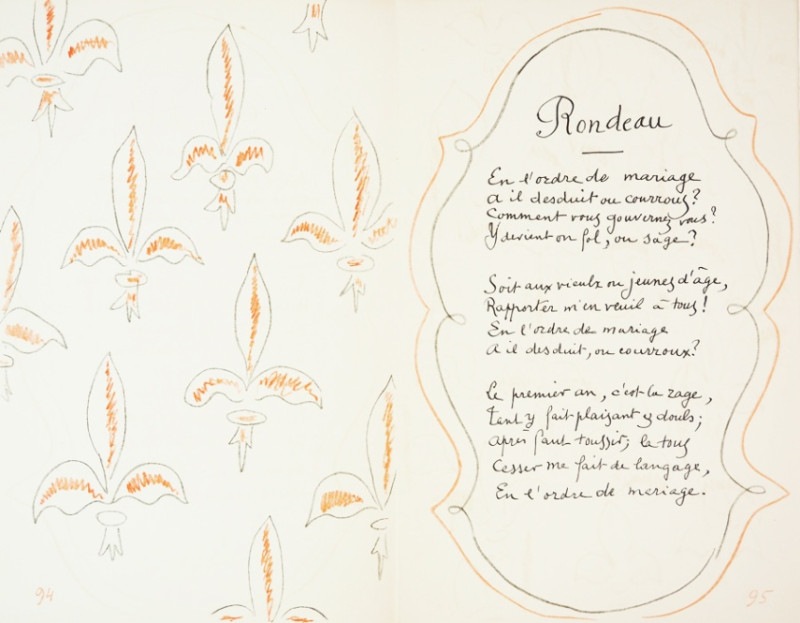 Rondeau
En l'ordre de mariage
a il desduit ou courrouz?
Comment vous gouvernez vous?
Y devient on fol, ou sage?
Soit aux vieulx ou jeunes d'âge,
Rapporter m'en veuil à tous!
En l'ordre de mariage
a il desduit, ou courroux?
Le premier an, c'est la rage,
Tant y fait plaisant et douls;
après faut toussir; la tous
Cesser me fait de langage,
En l'ordre de mariage.
94
95